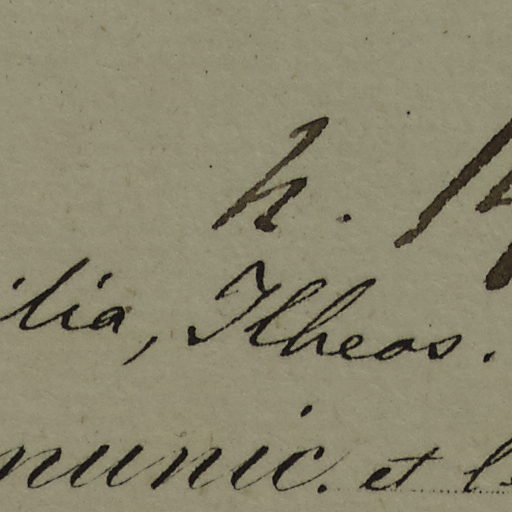 h.
ilia, Ilheos.
munic. et